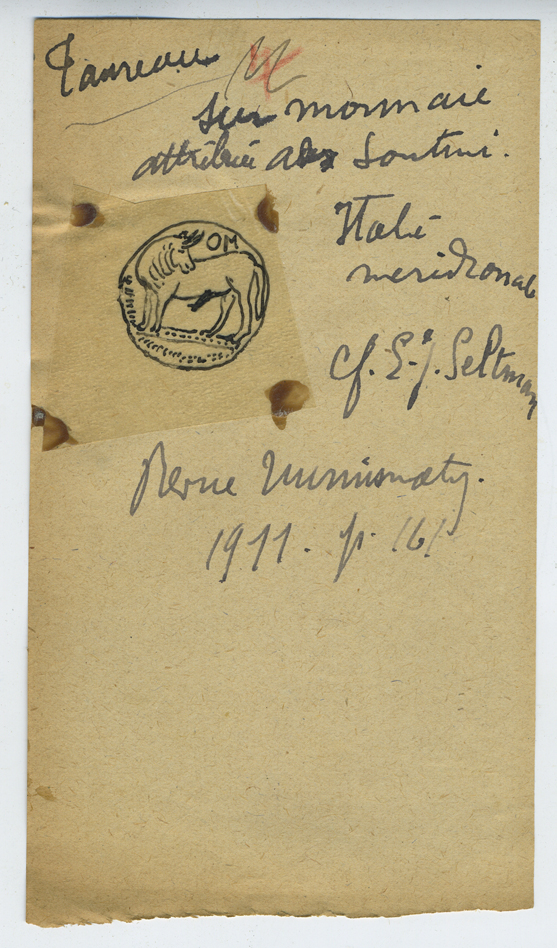 Taureau
sur monnaie
attribuée aux Sontini.
OM
Italie
meridionale
cf. E. J. Seltman
Revue Numismatq.
1911. p. 161